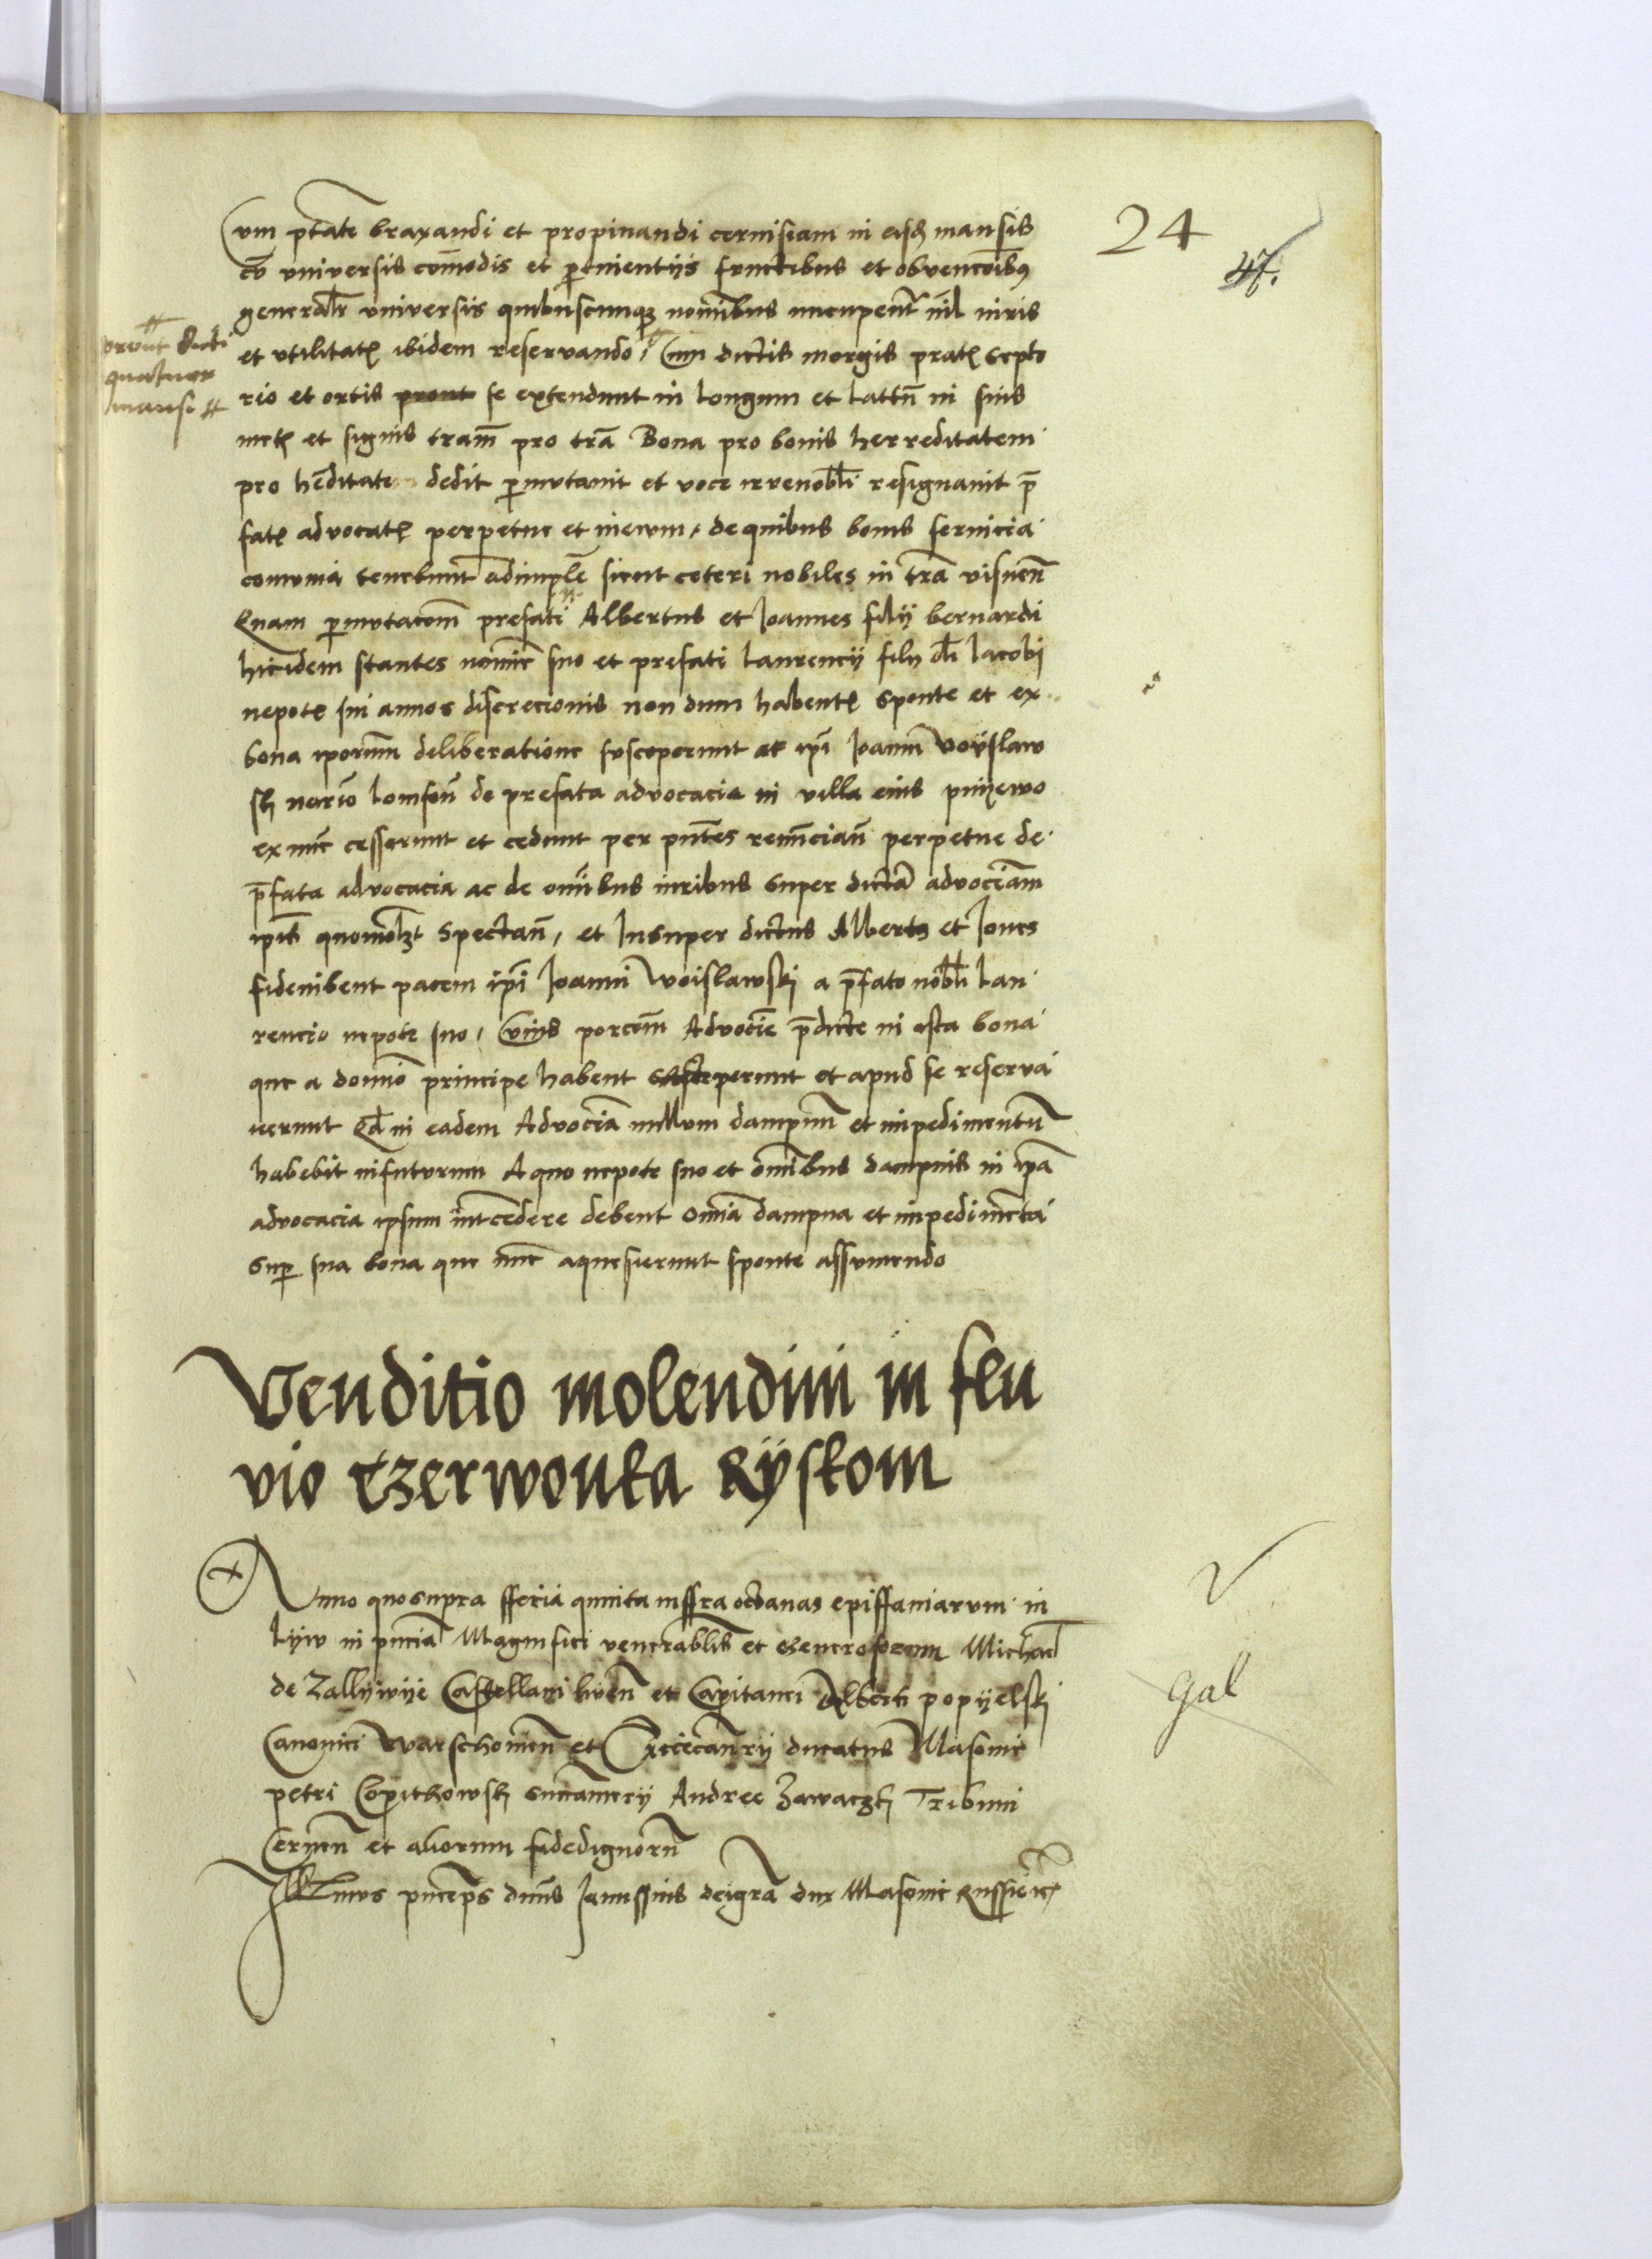 24
47.
Cum ptate braxandi et propinandi cervisiam in eisd mansis
cu universis comodis et pvenientijs fructibus et obvencoibus
generalr universis quibuscumque nomibus nucupent nil iuris
et utilitatis ibidem reservando, Cum dictis morgis pratis Septo
prout dicti
quatuor
mansi
rio et ortis prout se extendunt in longum et lattu in suis
metis et signis tram pro tra Bona pro bonis herreditatem
pro heditate dedit pmutavit et voce irrevocbli resignavit p
fatis advocatis perpetue et in evum, de quibus bonis servicia
comunia tenebunt adimple sicut ceteri nobiles in tra visnen
Quam pmutacom prefati Albertus et Joannes filij bernardi
hicidem stantes nomie suo et prefati laurencij filij oli Jacobi
nepotis sui annos discrecionis non dum habentis sponte et ex
bona iporum deliberatione susceperunt ac ipi Joanni Voyslaw
sk notario lomsen de prefata advocacia in villa eius pnijewo
ex nuc cesserunt et cedunt per pntes renuncian perpetue de
pfata advocacia ac de omibus iuribus super dicta advociam
ipis quomolzt spectan, et Insuper dictus Albertus et Joues
fideiubent pacem ipi Joanni Woislawskj a pfato nobli lau
rencio nepote suo, Cuius porcom Advocie pdicte in ista bona
que a domio principe habent susceperunt et apud se reserva
verunt Qd in eadem Advocia nullum dampnu et impedimentu
habebit infuturum A quo nepote suo et omibus dampnis in ipa
advocacia ipsum intcedere debent omia dampna et impedimeta
sup sua bona que nuc aquesierunt sponte assumendo
Venditio molendini in flu
vio Czerwonka Ryskom
Anno quosupra fferia quinta inffra octavas epiffaniarum in
Lyw in pncia Magnifici venerablis et Generosorum Michael
de Zallywije Castellani liven et Capitanei Alberti popyelskj
Canonici Warschovien et Vicecancrij ducatus Masovie
petri Copithowsk succamerij Andree Zawaczk Tribuni
Cernen et aliorum fidedignoru
Illmus princeps dnus Janussius dei gra dux Masovie Russie etc
Gal